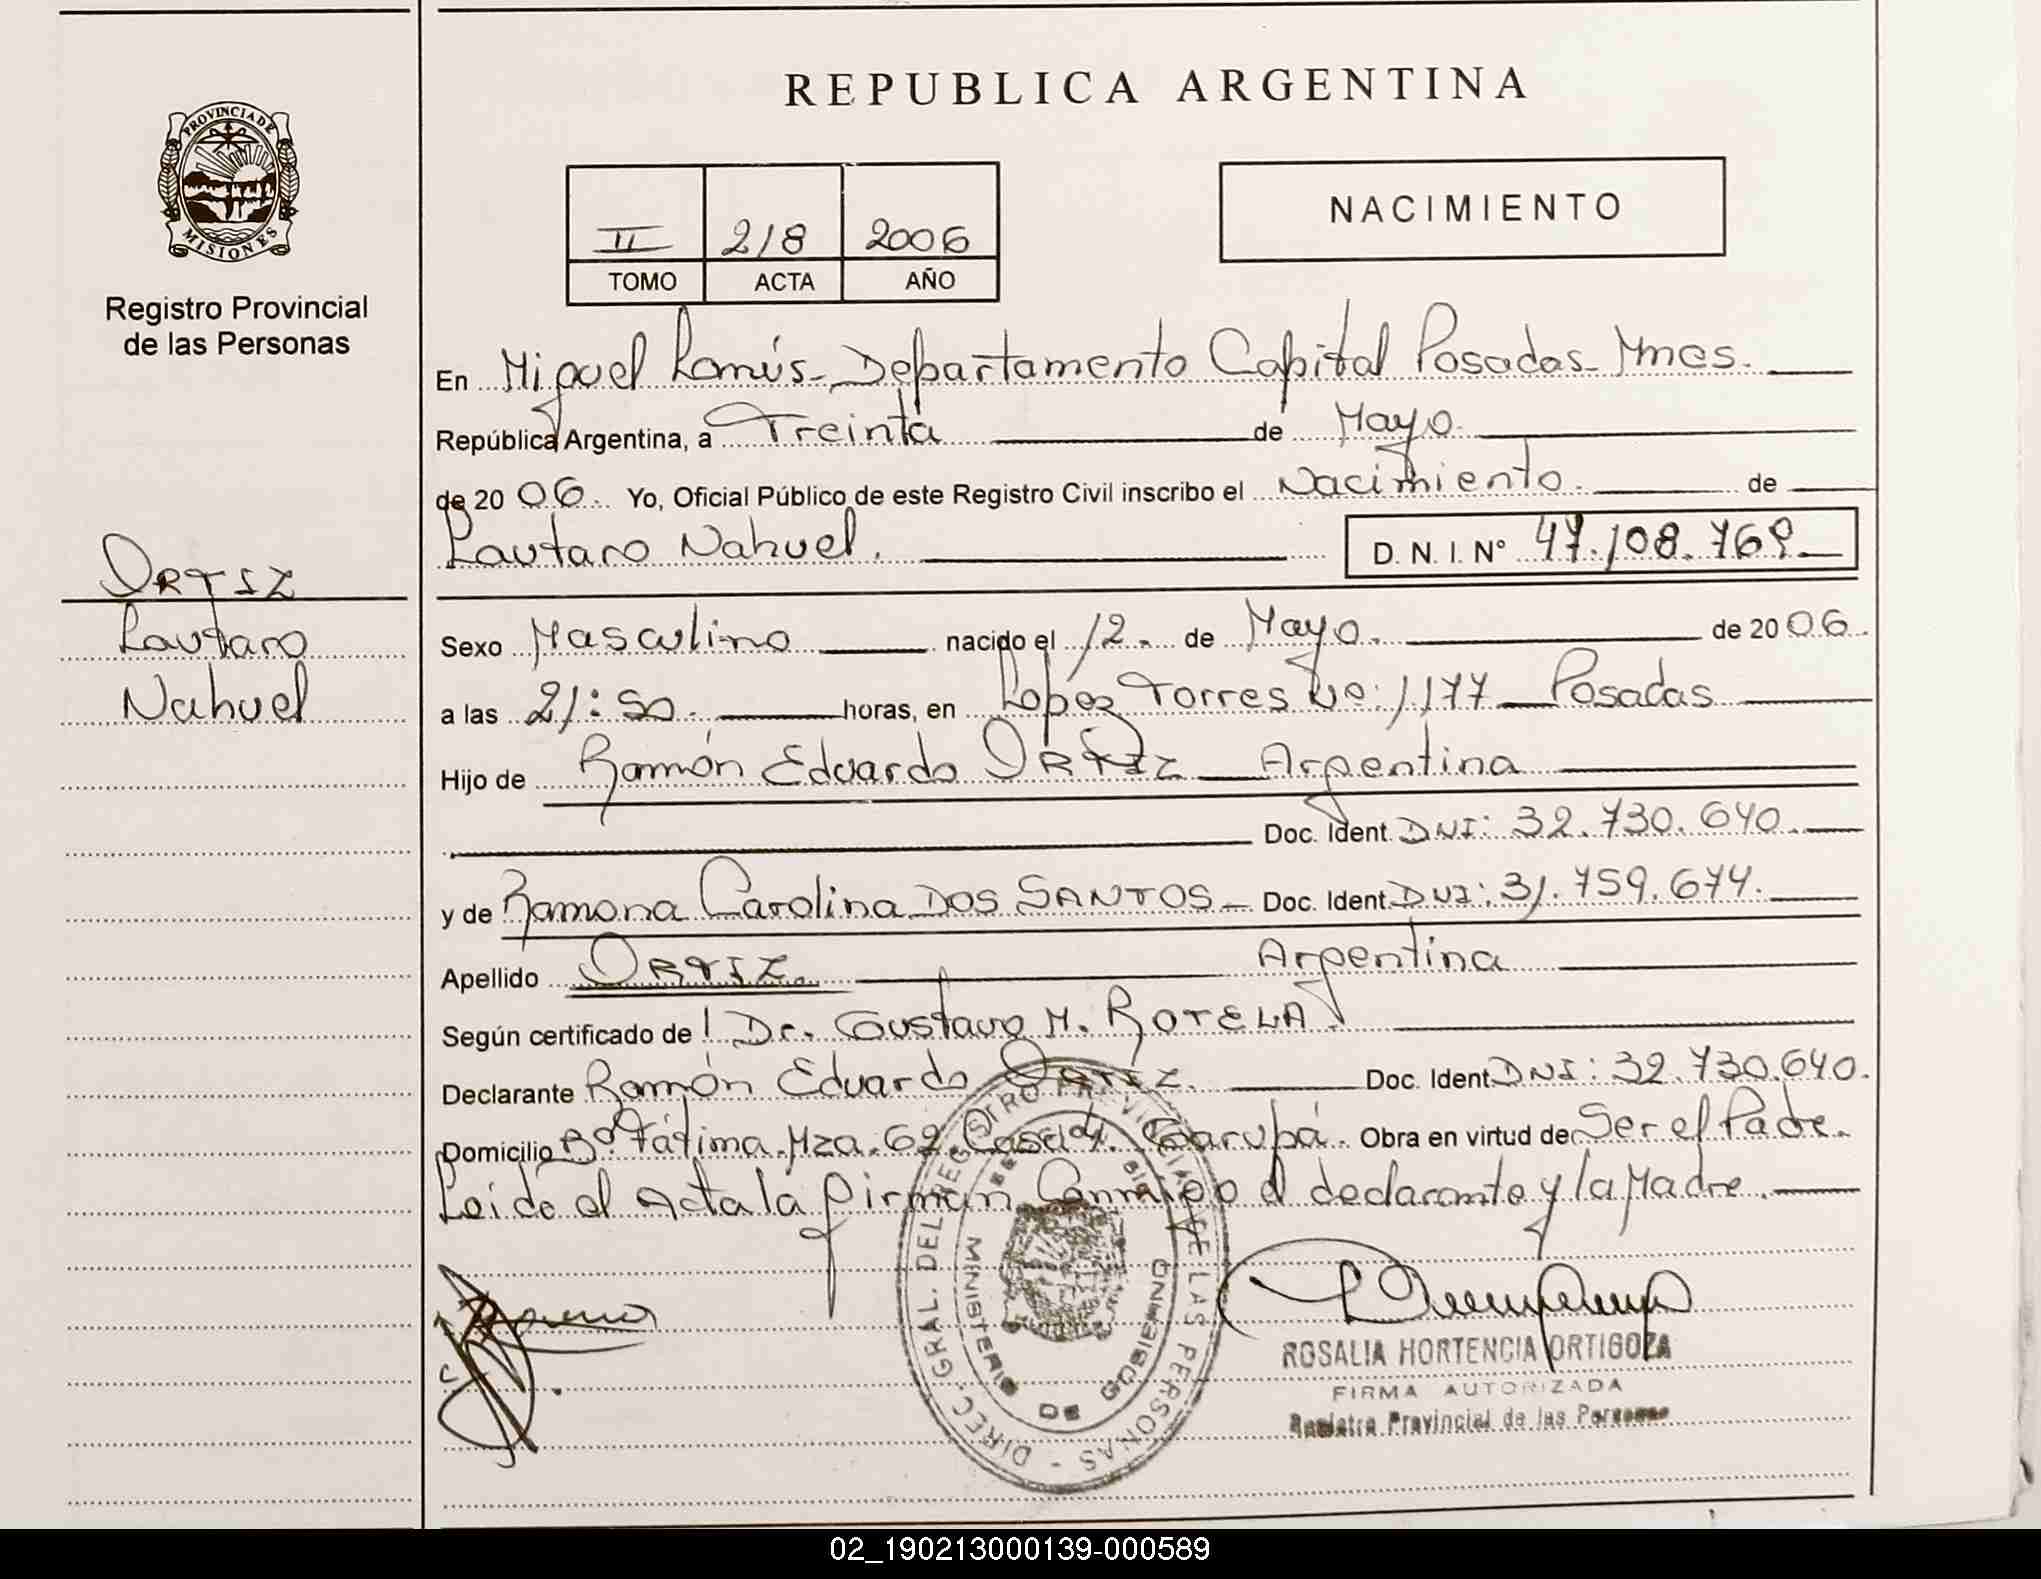 REPUBLICA ARGENTINA
PROVINCIA DE
MISIONES
Registro Provincial
de las Personas
NACIMIENTO
II 218 2006
TOMO ACTA AÑO
En Miguel Lanús - Departamento Capital Posadas - Mnes.
República Argentina, a Treinta de Mayo.
de 2006. Yo, Oficial Público de este Registro Civil inscribo el Nacimiento. de
Lautaro Nahuel. D. N. I. N° 47.108.769.
ORTIZ
Lautaro
Nahuel
Sexo Masculino nacido el 12. de Mayo. de 2006.
a las 21:50. horas, en López Torres No: 1177 Posadas
Hijo de Ramón Eduardo ORTIZ Argentina
Doc. Ident. DNI: 32.730.640.
y de Ramona Carolina DOS SANTOS - Doc. Ident. DNI: 31.759.674.
Apellido ORTIZ. Argentina
Según certificado de: Dr. Gustavo M. ROTELA.
Declarante Ramón Eduardo ORTIZ. Doc. Ident DNI: 32.730.640.
Domicilio Bº Fátima. Mza. 62. Casa Garupá. Obra en virtud de Ser el Padre.
Leida el Acta la firman Conmigo el declarante y la Madre.
DIREC. GRAL. DEL REGISTRO PROVINCIAL DE LAS PERSONAS -
MINISTERIO DE GOBIERNO
ROSALIA HORTENCIA ORTIGOZA
FIRMA AUTORIZADA
Registro Provincial de las Personas
02_190213000139-000589